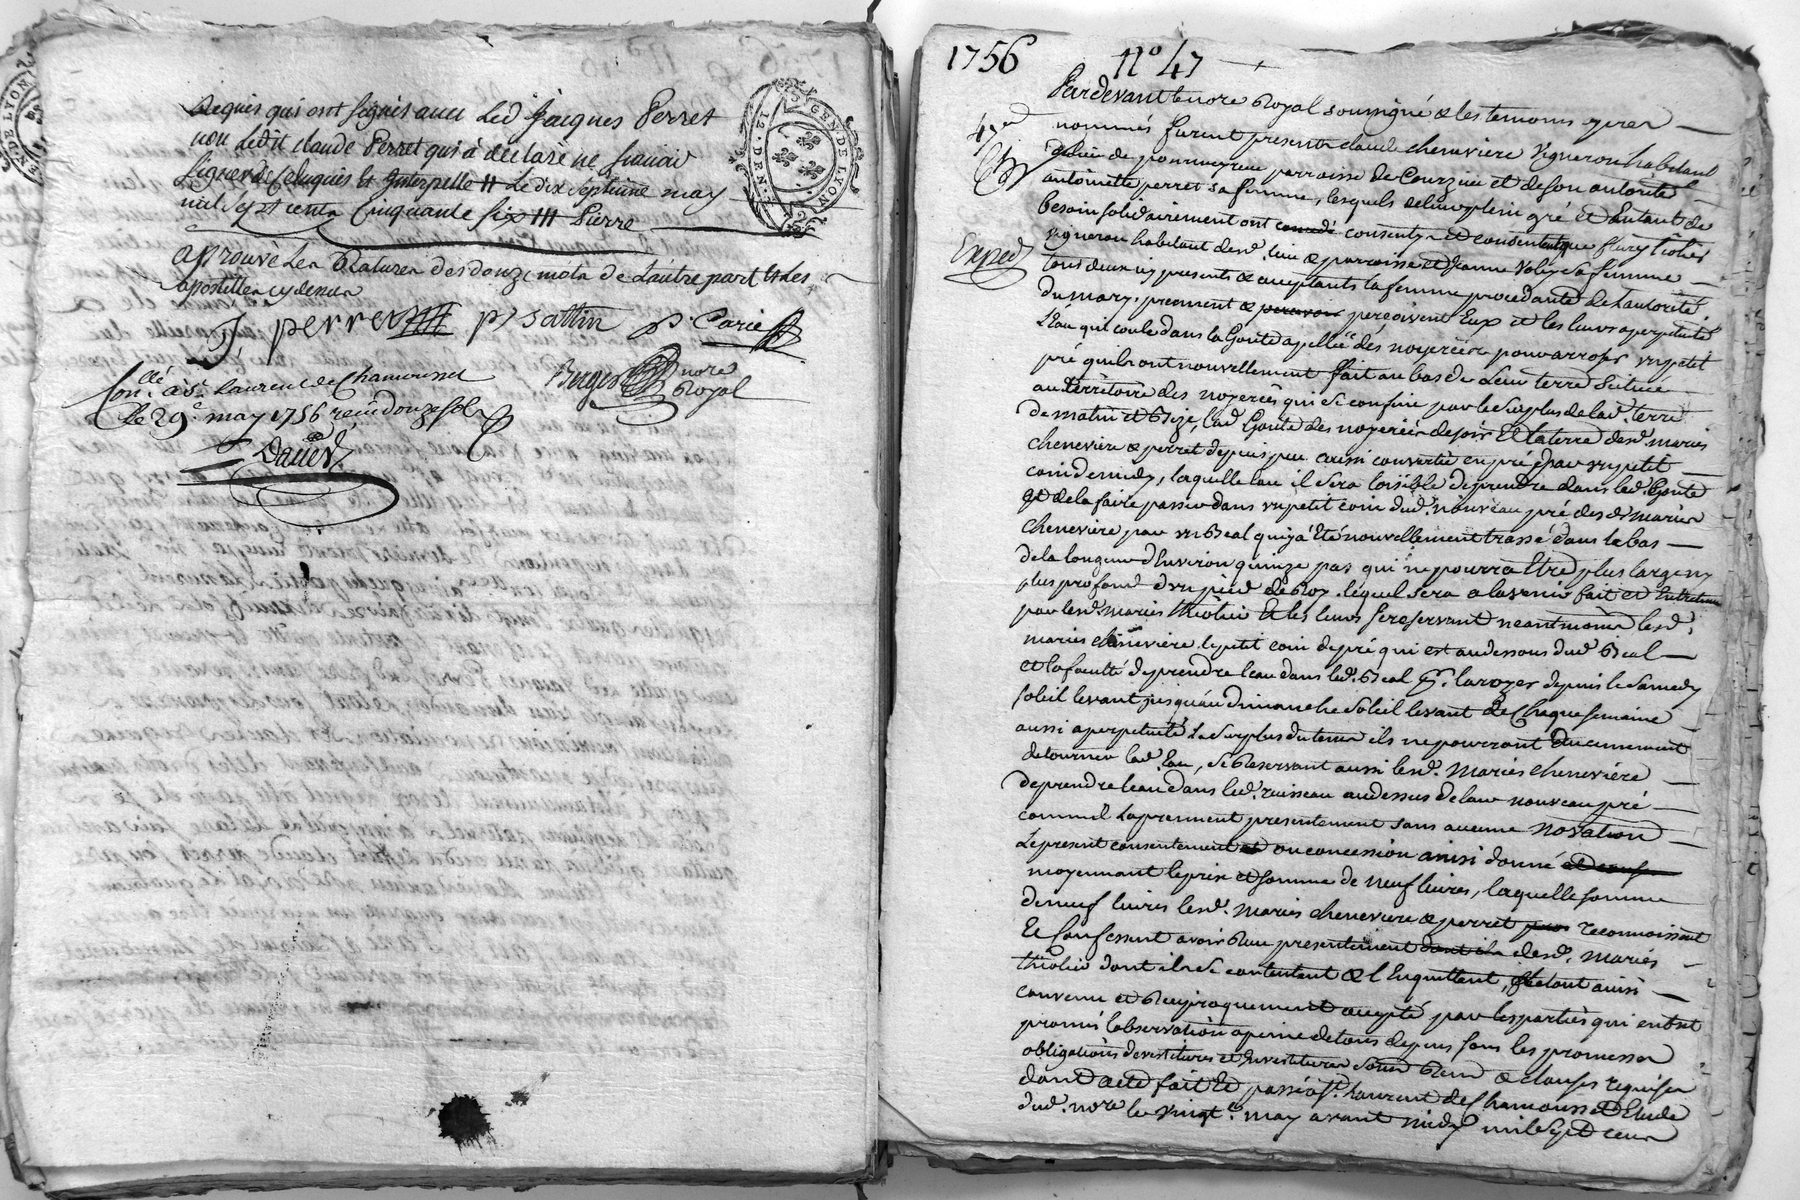 Requis qui ont signés avec Led Jacques Perret
non Ledit claude Perret qui à declaré ne scavoir
signer de Ce Enquis Et Interpellé Le dix septième may
mil sept cents Cinquante six Pierre
aprouvé Les Ratures des douze mots de L'autre part Et Les
apostilles cy dessus
J perret p sattin p. Carie
Berger nore
Royal
Conllé à St Laurent de Chamousset
Le 29e may 1756 reçu douze sols
GEN. DE LYON
12. DEN.
1756 no 47
Pardevant le nore Royal soussigné & les temoins cy-après
nommés furent presents claude chenevière vigneron habitant
47e
perroisse de Courzieu et de son autorité
antoinette perret sa femme, lesquels de leur plein gré et Entant de
besoin solidairement ont consenty et consentent que fleury thiolier
Exped
vigneron habitant desd. lieu & parroisse et Jeanne sa femme
tous deux icy presents & acceptants la femme procedante de l'autorité
du mary, prennent & perçoivent Eux et les leurs a perpetuité
L'Eau qui coule dans la Goute apellée des noyerées pour arroser un petit
pré qu'ils ont nouvellement fait au bas de Leur terre Scituée
au territoire des noyerées qui se confine par le Surplus de lad. terre
de matin et Bize, lad. Goute des noyerées de soir Et la terre desd. mariés
chenevière & perret depuis peu aussi convertie en pré par un petit
coin de midy, laquelle Eau il sera loisible de prendre dans lad. Goute
et de la faire passer dans un petit coin dud. nouveau pré desd. mariés
chenevière par un Beal qui y a Eté nouvellement trassé dans le bas
de la longueur d'Environ quinze pas qui ne pourra Etre plus large ny
plus profond d'un pied de Roy. lequel sera a lavenir fait et Entretenu
par lesd. mariés thiolier Et les leurs se reservant neantmoins lesd.
mariés chenevière le petit coin de pré qui est au dessous dud. Beal
et la faculté de prendre leau dans led. Beal pr. laroser depuis le Samedy
soleil levant jusqu'au dimanche soleil levant de Chaque semaine
aussi a perpetuité Le Surplus du tems ils ne pourront aucunement
detourner lad. Eau, se Reservant aussi lesd. Mariés chenevière
de prendre leau dans led. ruisseau au dessus de leur nouveau pré
comme ils La prennent presentement sans aucune novation
Le present consentement ou concession ainsi donné
moyennant le prix et somme de neuf livres, laquelle somme
de neuf livres lesd. Mariés chenevière & perret reconnoissent
Et Confessent avoir Reçu presentement desd. Mariés
thiolier dont ils se contentent & l'En quittent, Etant ainsi
convenu et Reciproquement accepté par les parties qui en ont
promis l'observation a peine de tous depens sous les promesses
obligations devestitures et Investitures Renon & clauses requises
dont acte fait Et passé a St. Laurent de Chamousset Etude
dud. nore le vingt may avant midy mil sept cens